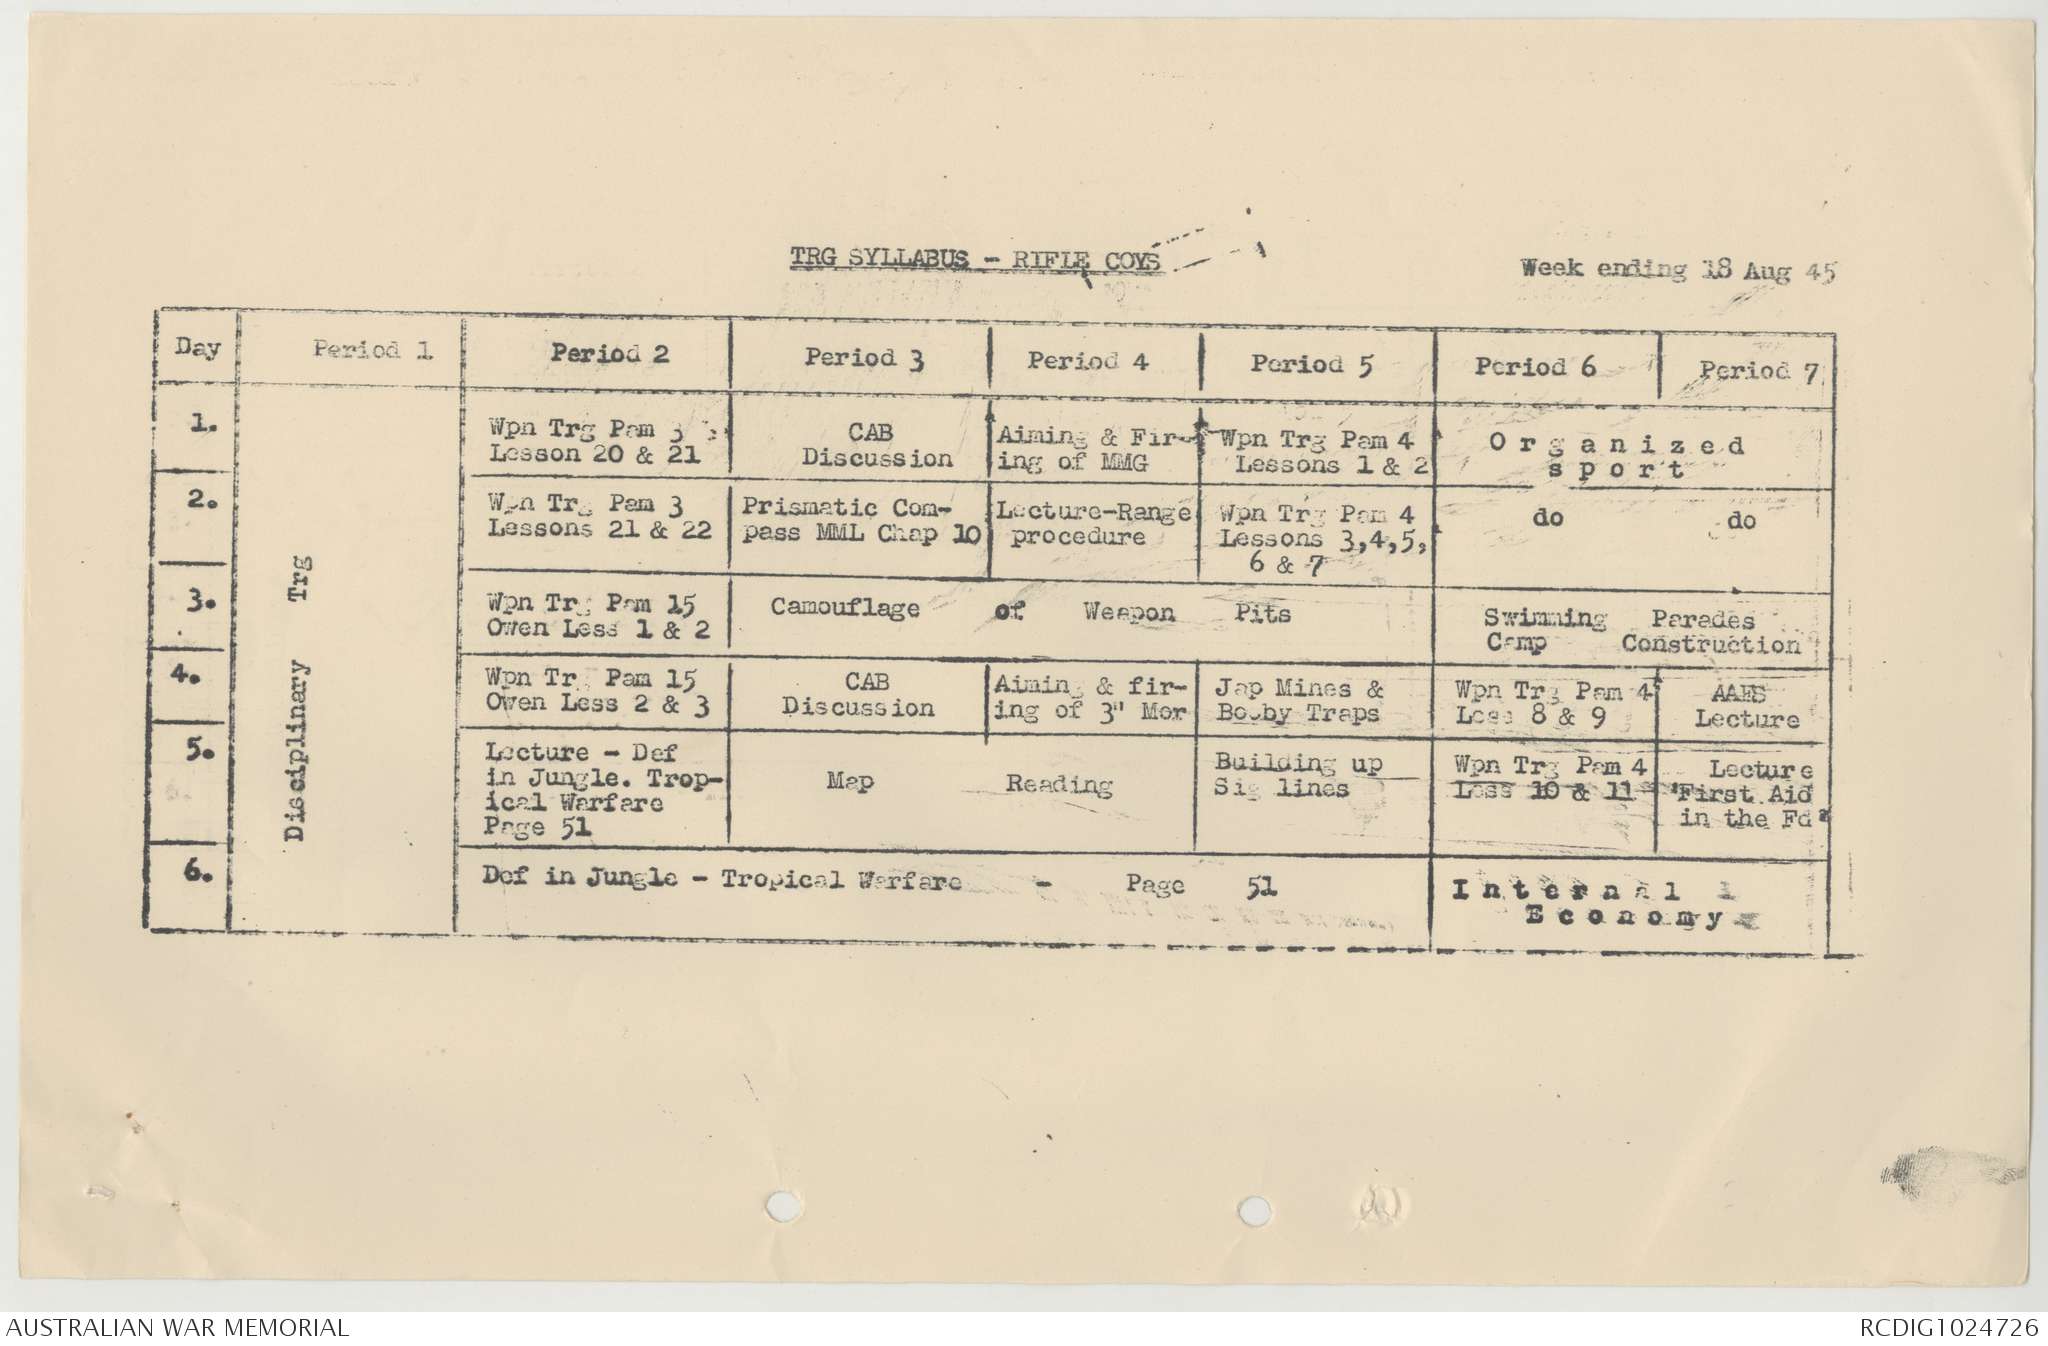 TRG SYLLABUS - RIFLE COYS
Week ending 18 Aug 45
Day Period 1 Period 2 Period 3 Period 4 Period 5 Period 6 Period 7
Disciplinary Trg
1.
Wpn Trg Pam 3
Lesson 20 & 21
CAB
Discussion
Aiming & Fir-
ing of MMG
Wpn Trg Pam 4
Lessons 1 & 2
Organized
sport
2.
Wpn Trg Pam 3
Lessons 21 & 22
Prismatic Com-
pass MML Chap 10
Lecture-Range
procedure
Wpn Trg Pam 4
Lessons 3,4,5,
6 & 7
do
do
3.
Wpn Trg Pam 15
Owen Less 1 & 2
Camouflage of Weapon Pits
Swimming Parades
Camp Construction
4.
Wpn Trg Pam 15
Owen Less 2 & 3
CAB
Discussion
Aiming & fir-
ing of 3" Mor
Jap Mines &
Booby Traps
Wpn Trg Pam 4
Less 8 & 9
AAES
Lecture
5.
Lecture - Def
in Jungle. Trop-
ical Warfare
Page 51
Map Reading
Building up
Sig lines
Wpn Trg Pam 4
Less 10 & 11
Lecture
"First Aid
in the Fd"
6.
Def in Jungle - Tropical Warfare - Page 51
Internal
Economy
AUSTRALIAN WAR MEMORIAL
RCDIG1024726